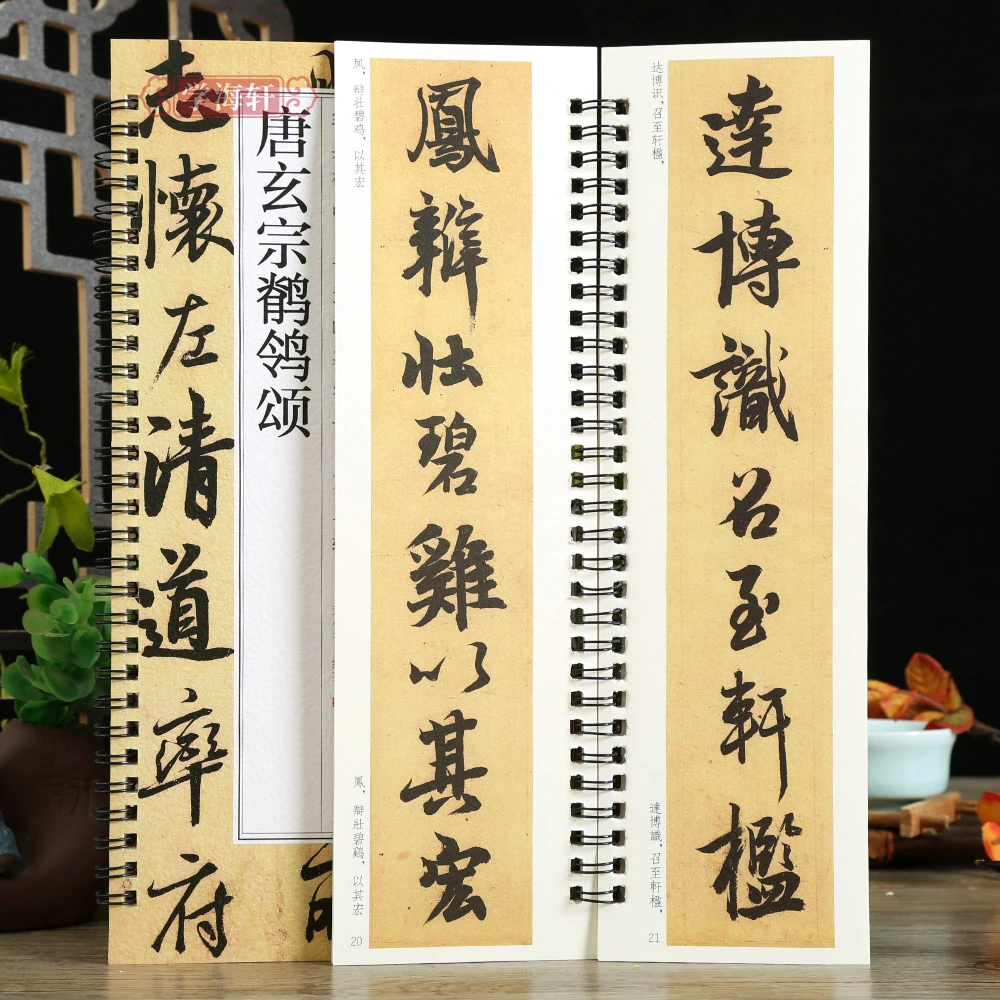 学海轩
唐玄宗鹡鸰颂
志懷左清道率府
凤，辩壮碧鸡，以其宏
鳳辯壯碧雞以其宏
鳳，辯壯碧鷄，以其宏
20
达博识，召至轩楹，
達博識召至軒檻
達博識，召至軒楹，
21